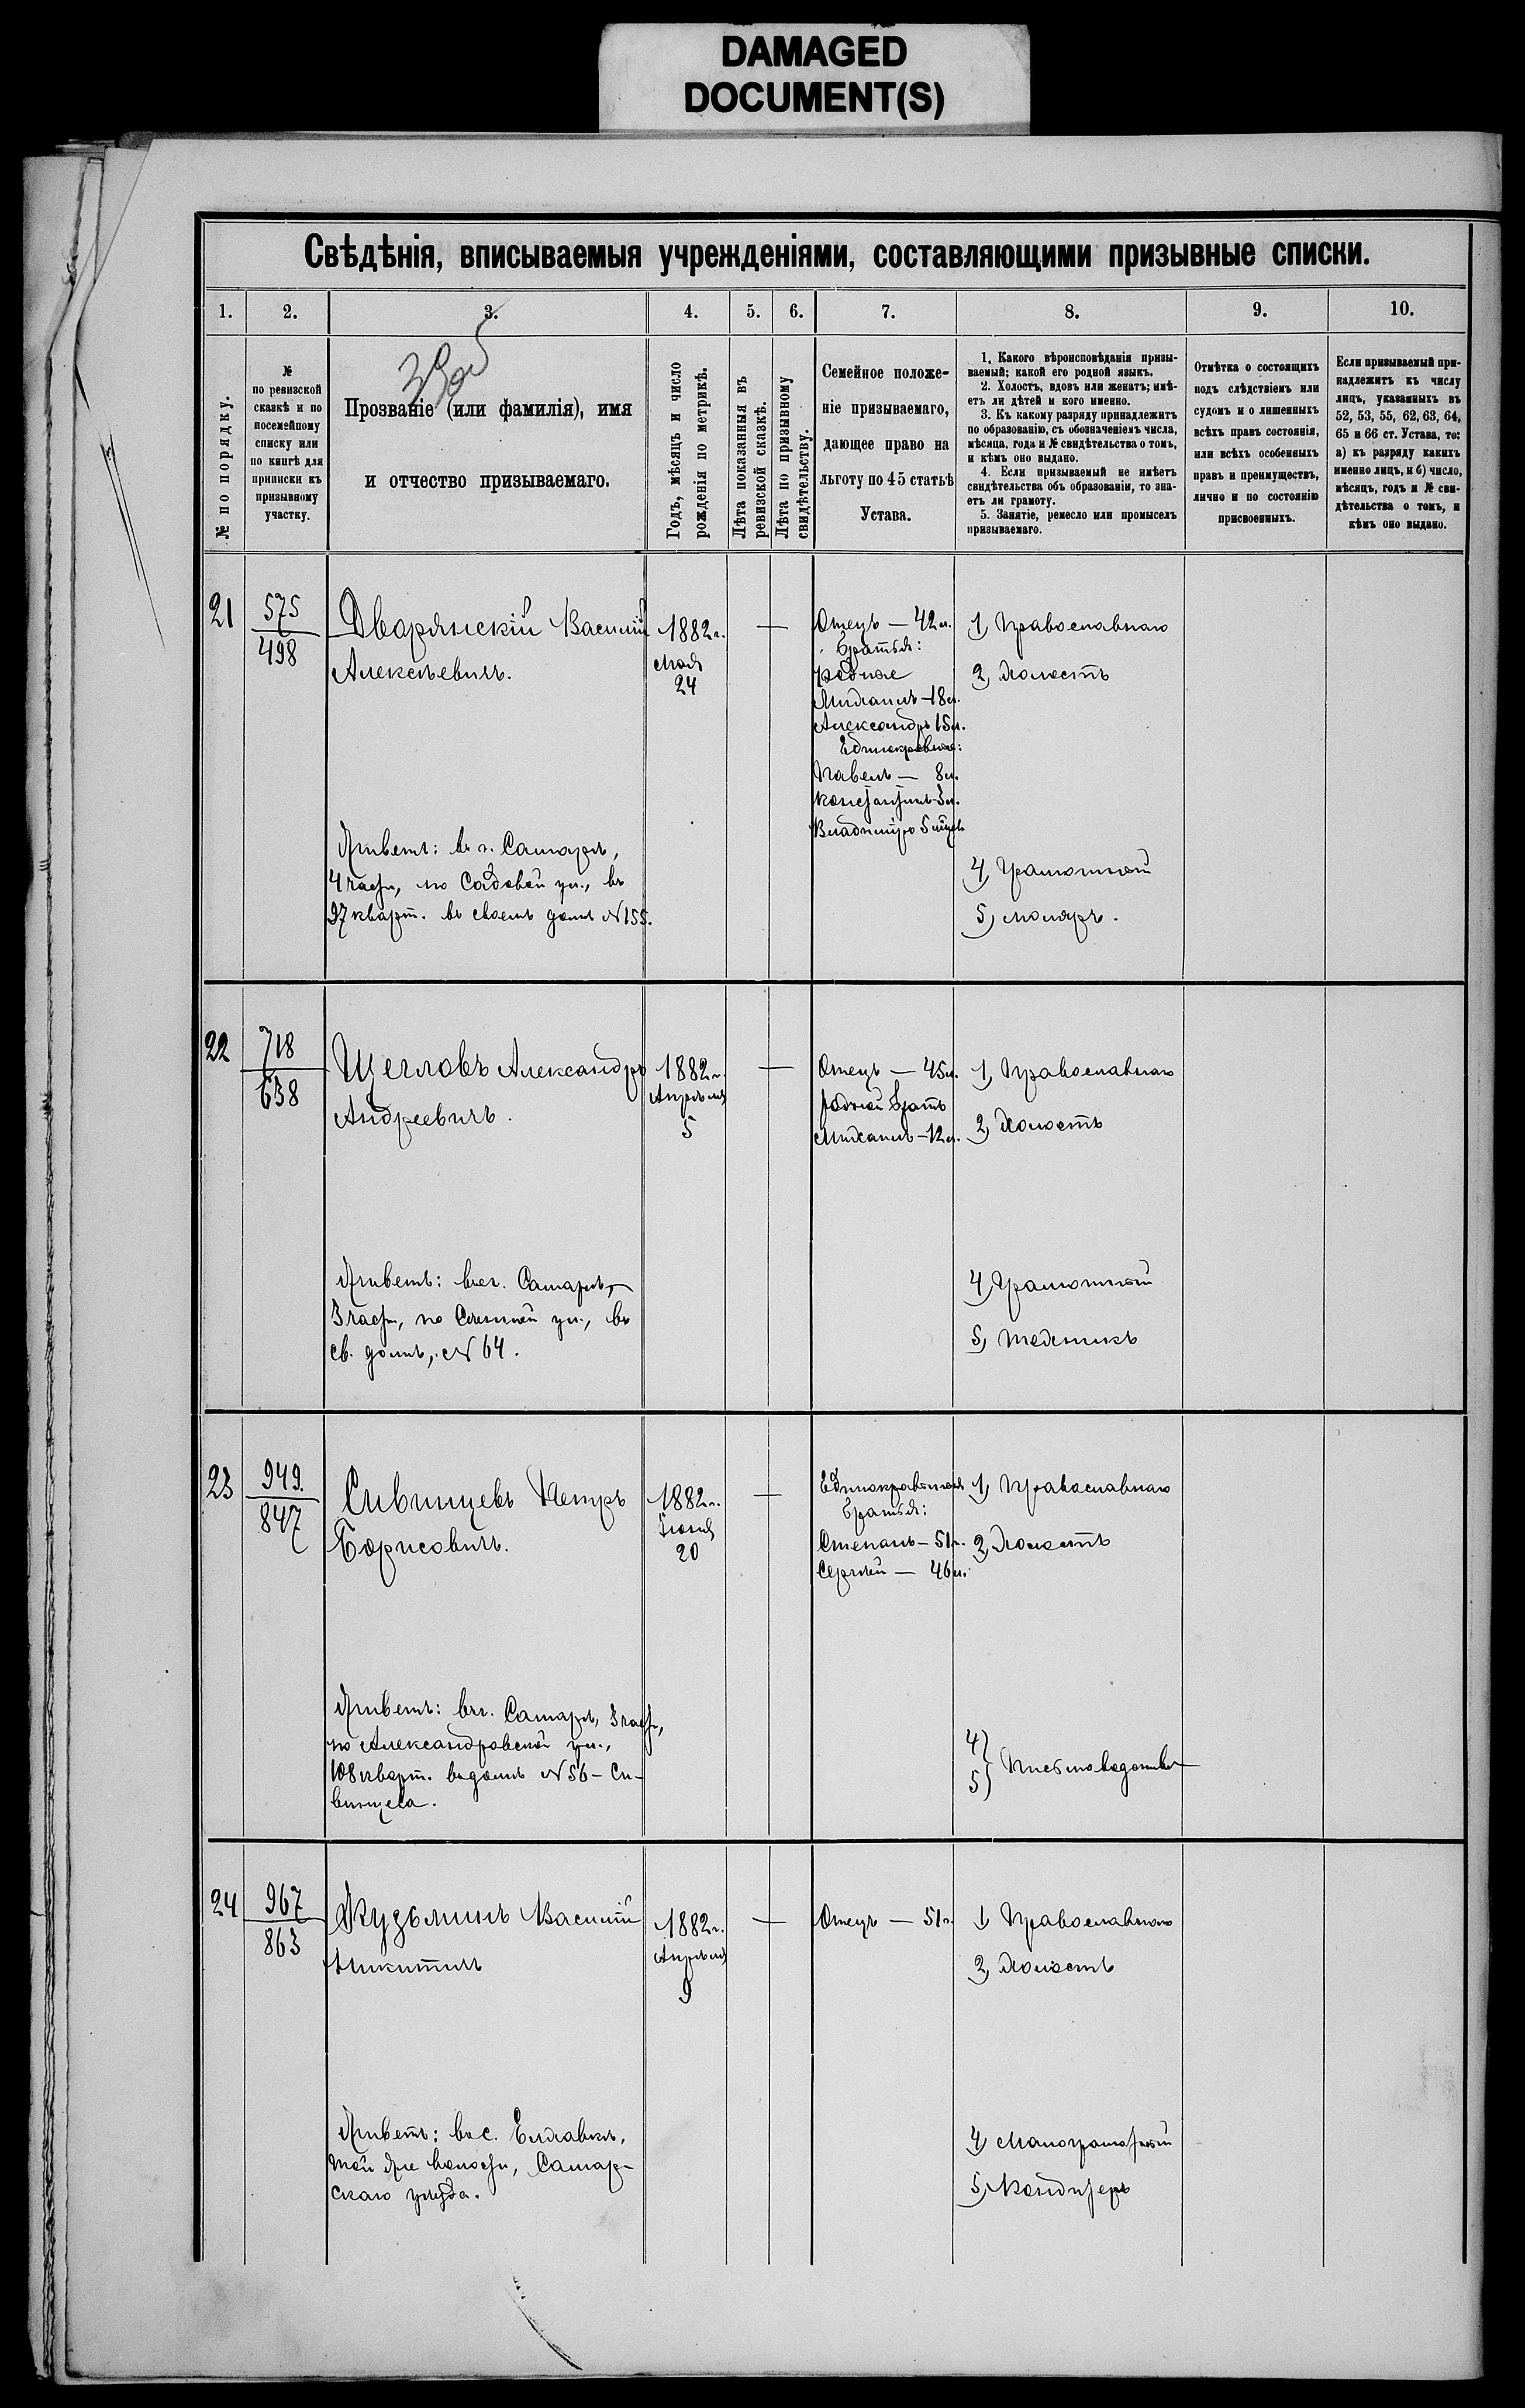 DAMAGED
DOCUMENT(S)
Свѣдѣнія, вписываемыя учрежденіями, составляющими призывные списки.
1. 2. 3. 4. 5. 6. 7. 8. 9. 10.
№ по порядку.
№
по ревизской
сказкѣ и по
посемейному
списку или
по книгѣ для
приписки къ
призывному
участку.
Прозваніе (или фамилія), имя
и отчество призываемаго.
Годъ, мѣсяцъ и число
рожденія по метрикѣ.
Лѣта показанныя въ
ревизской сказкѣ.
Лѣта по призывному
свидѣтельству.
Семейное положе-
ніе призываемаго,
дающее право на
льготу по 45 статьѣ
Устава.
1. Какого вѣроисповѣданія призы-
ваемый; какой его родной языкъ.
2. Холостъ, вдовъ или женатъ; имѣ-
етъ ли дѣтей и кого именно.
3. Къ какому разряду принадлежитъ
по образованію, съ обозначеніемъ числа,
мѣсяца, года и № свидѣтельства о томъ,
и кѣмъ оно выдано.
4. Если призываемый не имѣетъ
свидѣтельства объ образованіи, то зна-
етъ ли грамоту.
5. Занятіе, ремесло или промыселъ
призываемаго.
Отмѣтка о состоящихъ
подъ слѣдствіемъ или
судомъ и о лишенныхъ
всѣхъ правъ состоянія,
или всѣхъ особенныхъ
правъ и преимуществъ,
лично и по состоянію
присвоенныхъ.
Если призываемый при-
надлежитъ къ числу
лицъ, указанныхъ въ
52, 53, 55, 62, 63, 64,
65 и 66 ст. Устава, то:
а) къ разряду какихъ
именно лицъ, и б) число,
мѣсяцъ, годъ и № сви-
дѣтельства о томъ, и
кѣмъ оно выдано.
21
575
498
Дворянскій Василій
Алексѣевичъ.
Живетъ: въ г. Самарѣ,
4 части, по Садовой ул., въ
97 кварт. въ своемъ домѣ №155.
1882 г.
Мая
24
—
Отецъ — 42 л.
Братья:
родные
Михаилъ — 18 л.
Александръ 15 л.
Единокровные:
Павелъ — 8 л.
Константинъ - 3 л.
Владиміръ 5 мѣсяц.
1) Православнаго
2) Холостъ
4) Грамотный
5) Моляръ.
22
718
638
Щегловъ Александръ
Андреевичъ.
Живетъ: въ г. Самарѣ,
3 части, по Сѣнной ул., въ
св. домѣ, №64.
1882 г.
Апрѣля
5
—
Отецъ — 45 л.
родной братъ
Михаилъ — 12 л.
1) Православнаго
2) Холостъ
4) Грамотный
5) Жестникъ
23
949.
847
Сивинцевъ Петръ
Борисовичъ.
Живетъ: въ г. Самарѣ, 3 части,
по Александровской ул.,
108 кварт. въ домѣ №56 - Си-
винцева.
1882 г.
Іюня
20
—
Единокровные
братья:
Степанъ — 51 г.
Сергѣй — 46 л.
1) Православнаго
2) Холостъ
4)
5) Письмоводитель
24
967
863
Кузьминъ Василій
Никитичъ
Живетъ: въ с. Елховкѣ,
той же волости, Самар-
скаго уѣзда.
1882 г.
Апрѣля
9
—
Отецъ — 51 г.
1) Православнаго
2) Холостъ
4) Малограмотный
5) Кондитеръ